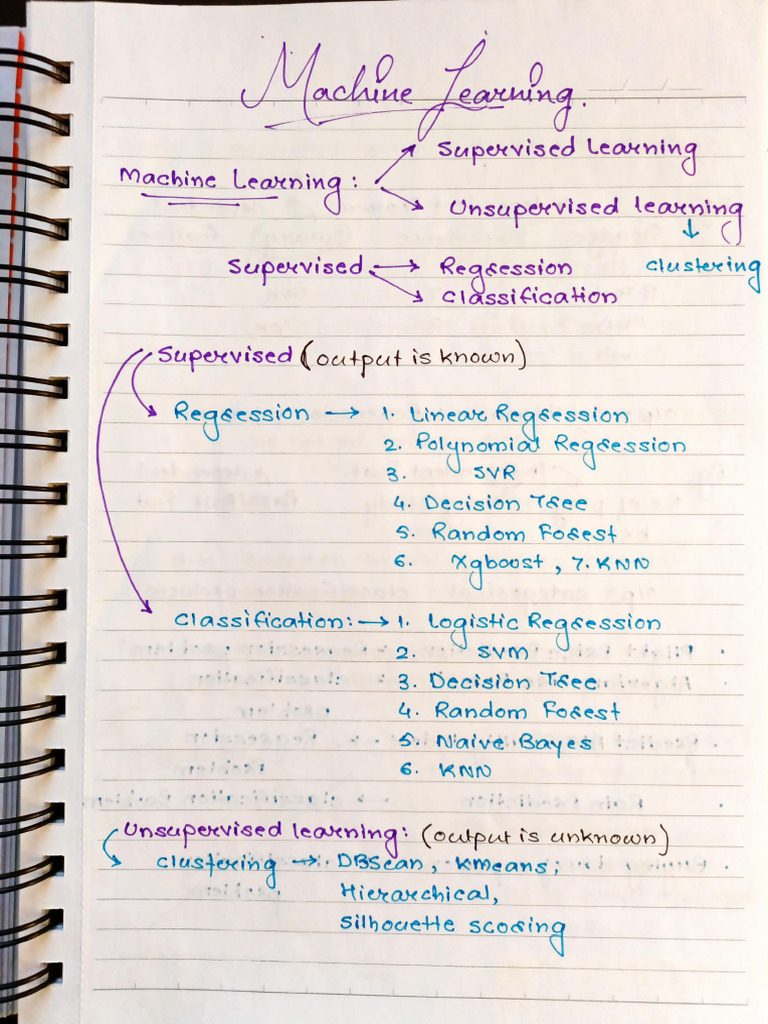 Machine Learning.
Supervised Learning
Machine Learning: → Unsupervised learning
↓
Supervised → Regression clustering
→ Classification
Supervised (output is known)
Regression → 1. Linear Regression
2. Polynomial Regression
3. SVR
4. Decision Tree
5. Random Forest
6. Xgboost, 7. KNN
Classification: → 1. Logistic Regression
2. SVM
3. Decision Tree
4. Random Forest
5. Naive Bayes
6. KNN
Unsupervised learning: (output is unknown)
clustering → DBScan, Kmeans;
Hierarchical,
Silhouette scoring